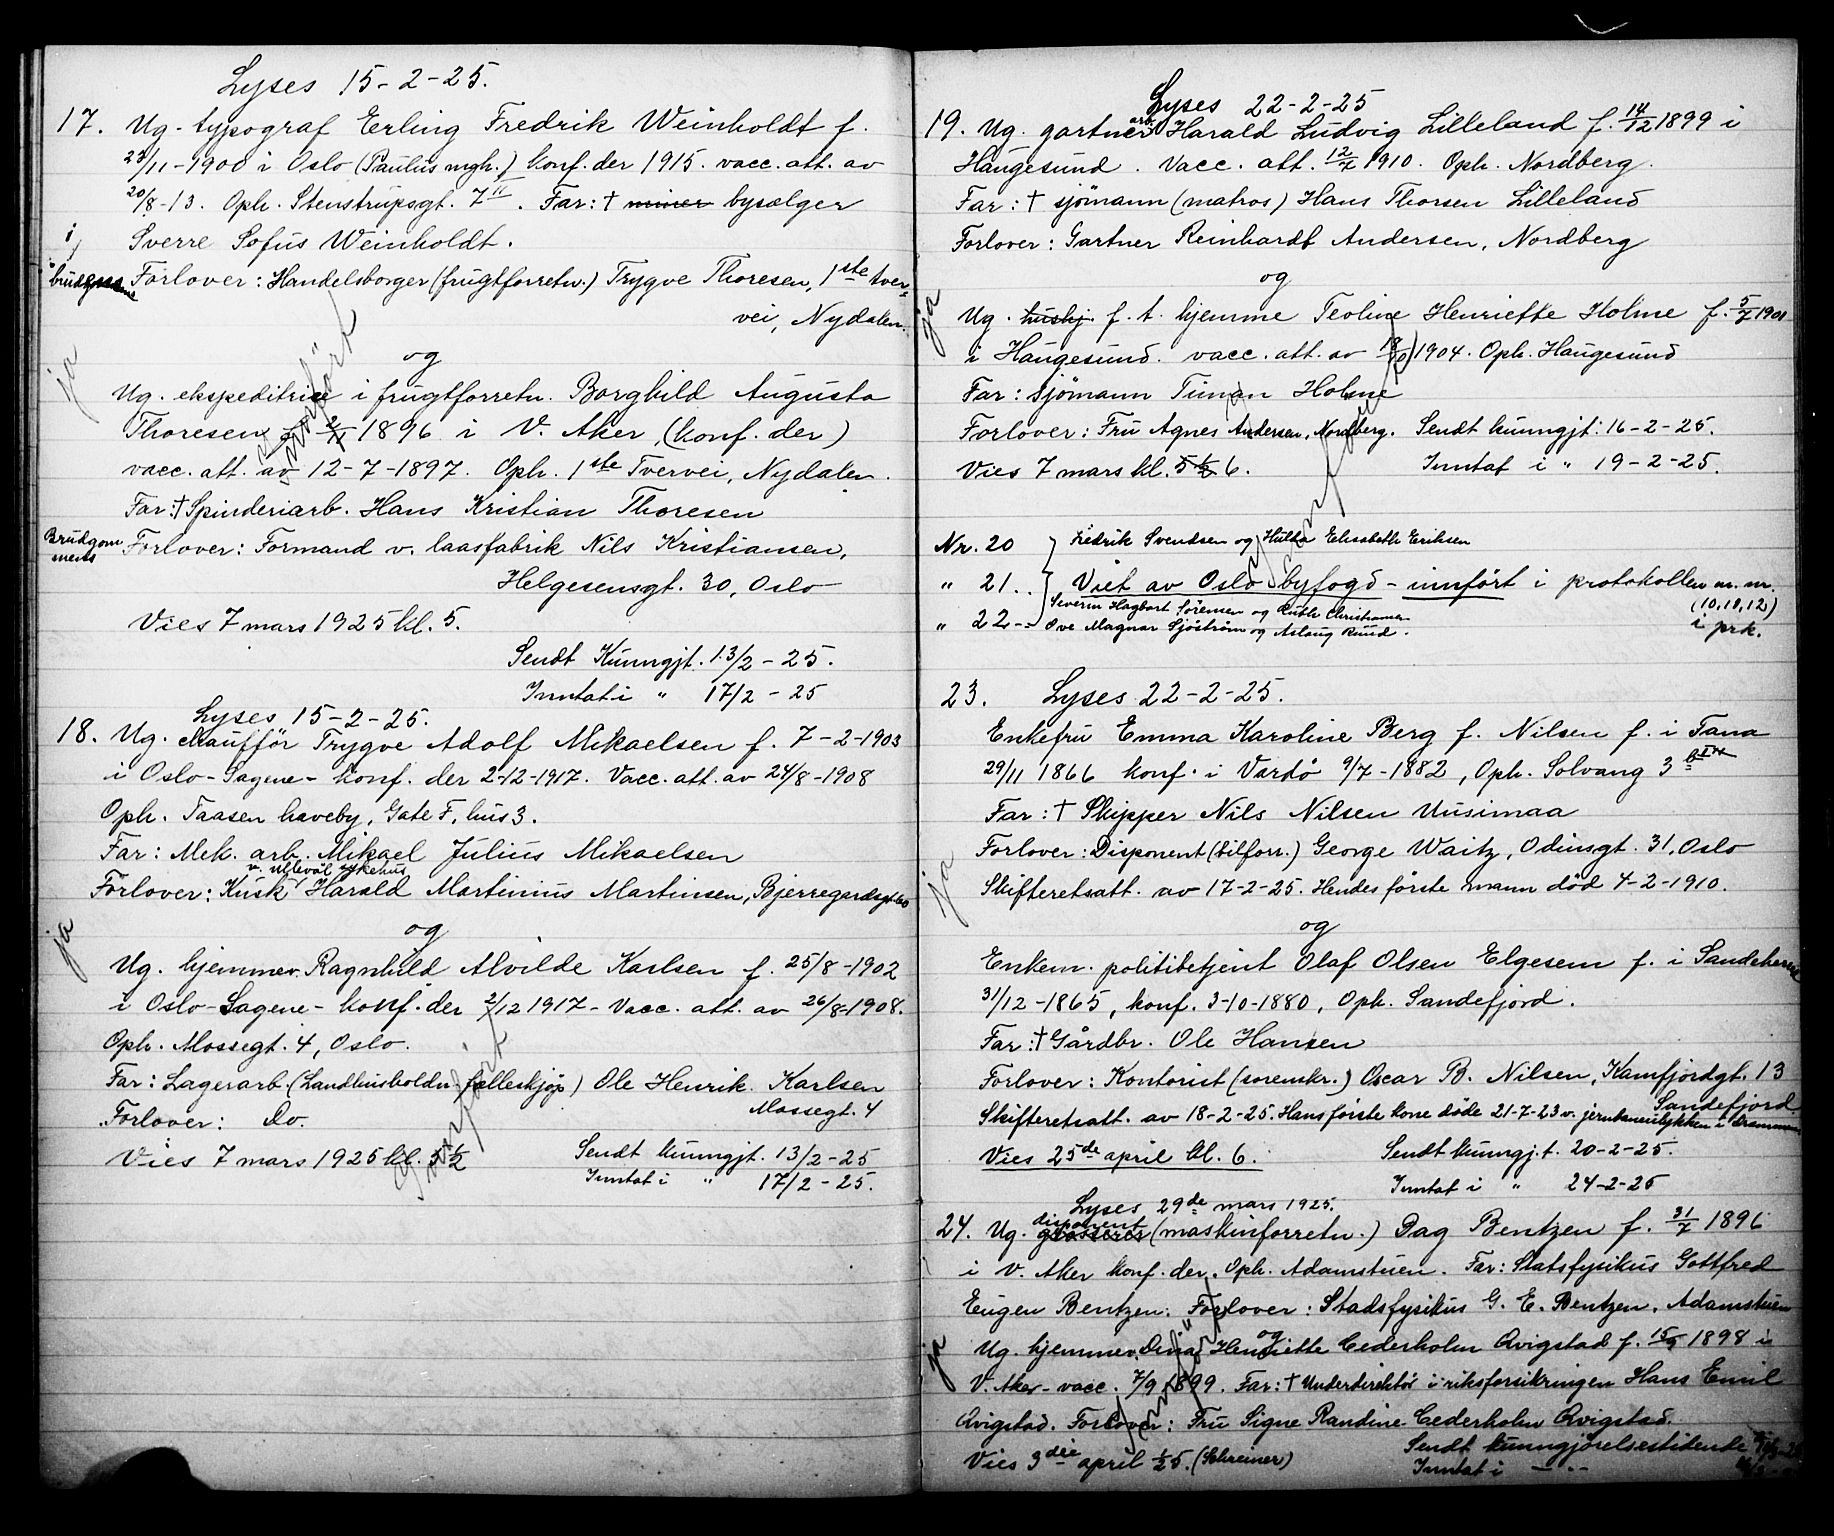 Lyses 15-2-25.
17. Ug. typograf Erling Fredrik Weinholdt f.
23/11-1900 i Oslo (Paulus mgh.) konf. der 1915. vacc. att. av
20/8-13. Oph. Stenstrupsgt. 7 II. Far: † miner bysælger
Sverre Sofus Weinholdt.
Forlover: Handelsborger (frugtforretn.) Trygve Thoresen, 1ste tver-
vei, Nydalen.
ja
og
Ug. ekspeditrise i frugtforretn. Borghild Augusta
Thoresen 1896 i V. Aker, (konf. der)
vacc. att. av 12-7-1897. Oph. 1ste Tvervei, Nydalen.
Far: † Spinderiarb. Hans Kristian Thoresen
Brudgommens
Forlover: Formand v. laasfabrik Nils Kristiansen,
Helgesensgt. 30, Oslo
Vies 7 mars 1925 kl. 5.
Sendt Kunngjt. 13/2-25.
Inntat i " 17/2-25
Innført
Lyses 15-2-25.
18. Ug. chaufför Trygve Adolf Mikaelsen f. 7-2-1903
i Oslo-Sagene- konf. der 2-12-1917. Vacc. att. av 24/8-1908
Oph. Taasen haveby, Gate F, hus 3.
Far: Mek. arb. Mikael Julius Mikaelsen
v. Ullevål sykehus
Forlover: Kusk Harald Martinius Martinsen, Bjerregaardsgt. 60
ja
og
Ug. hjemmev. Ragnhild Alvilde Karlsen f. 25/8-1902
i Oslo-Sagene- konf. der 2/12 1917- Vacc. att. av 26/8-1908.
Oph. Mossegt. 4, Oslo.
Far: Lagerarb. (Landhusholdn. felleskjøp) Ole Henrik Karlsen
Mossegt. 4
Forlover: Do.
Vies 7 mars 1925 kl. 5½
Sendt kunngjt. 13/2-25
Inntat i " 17/2-25.
Innført
Lyses 22-2-25
19. Ug. gartnerarb. Harald Ludvig Lilleland f. 14/12 1899 i
Haugesund. Vacc. att. 12/7 1910. Oph. Nordberg.
Far: † sjömann (matros) Hans Thorsen Lilleland
Forlover: Gartner Reinhardt Andersen, Nordberg
og
ja
Ug. hushj. f. t. hjemme Teoline Henriette Holme f. 5/7 1901
i Haugesund. vacc. att. av 1904. Oph. Haugesund
Far: sjömann Timan Holme
Forlover: Fru Agnes Andersen, Nordberg. Sendt kunngjt. 16-2-25.
Vies 7 mars kl. 5½ 6. Inntat i " 19-2-25.
Innført
Nr. 20 Fredrik Svendsen og Hulda Elisabeth Eriksen
" 21.. Viet av Oslo byfogd - innført i protokollen m. nr.
(10, 11, 12)
Severin Hagbart Sörensen og Ruth Christiansen
" 22-- Ove Magnar Sjöström og Aslaug Ruud.
i prk.
23. Lyses 22-2-25.
Enkefru Emma Karoline Berg f. Nilsen f. i Tana
29/11 1866 konf. i Vardö 9/7-1882, Oph. Solvang 3
Far: † Skipper Nils Nilsen Uusimaa
Forlover: Disponent (bilforr.) George Waitz, Odinsgt. 31, Oslo
Skifteretsatt. av 17-2-25. Hendes förste mann död 4-2-1910.
ja
og
Enkem. politibetjent Olaf Olsen Elgesem f. i Sandeherred
31/12-1865, konf. 3-10-1880, Oph. Sandefjord.
Far: † Gårdbr. Ole Hansen
Forlover: Kontorist (sorenskr.) Oscar B. Nilsen, Kamfjordgt. 13
Sandefjord.
Skifteretsatt. av 18-2-25. Hans förste kone döde 21-7-23 v. jernbaneulykken i Drammen
Vies 25de april kl. 6. Sendt kunngj.t. 20-2-25.
Inntat i " 24-2-25
Lyses 29de mars 1925.
24. Ug. grosserer disponent (maskinforretn.) Dag Bentzen f. 31/7 1896
i V. Aker konf. der. Oph. Adamstuen. Far: Statsfysikus Gottfred
Eugen Bentzen. Forlover: Stadsfysikus G. E. Bentzen, Adamstuen
og
ja
Ug. hjemmev. Dina Henriette Cederholm Qvigstad f. 15/9 1898 i
V. Aker - vacc. 7/9 1899. Far: † Underdirektör i riksforsikringen Hans Emil
Qvigstad. Forlover: Fru Signe Randine Cederholm Qvigstad.
Vies 3die april ½5. (Schreiner)
Sendt kunngjörelsestidende
Inntat i
Innført